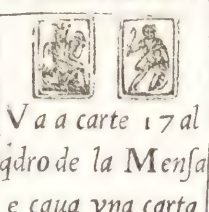 Va a carte 17 al
q̃dro de la Menſa
e caua vna carta